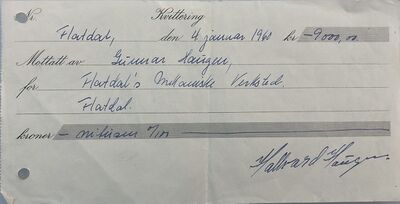 Nr. Kvittering
Flatdal, den 4 januar 1960 kr. -9000,00
Mottatt av Gunnar Haugen,
for Flatdal's Mekaniske Verksted
Flatdal.
kroner - nitusen 0/100
Halvard Haugen